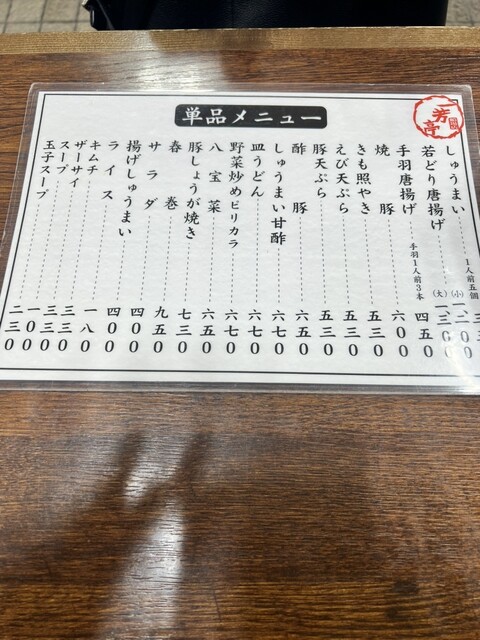 単品メニュー
一芳亭
しゅうまい 1人前五個
若どり唐揚げ (小) (大)
手羽唐揚げ 手羽1人前3本 四五0
焼豚 六00
きも照やき 五三0
えび天ぷら 五三0
豚天ぷら 五三0
酢豚 六七0
しゅうまい甘酢 六七0
皿うどん 六七0
野菜炒めピリカラ 六七0
八宝菜 六五0
豚しょうが焼き 七三0
春巻 九五0
サラダ 四00
揚げしゅうまい 四00
ライス 一八0
キムチ 三三0
ザーサイ 三三0
スープ 一00
玉子スープ 二三0